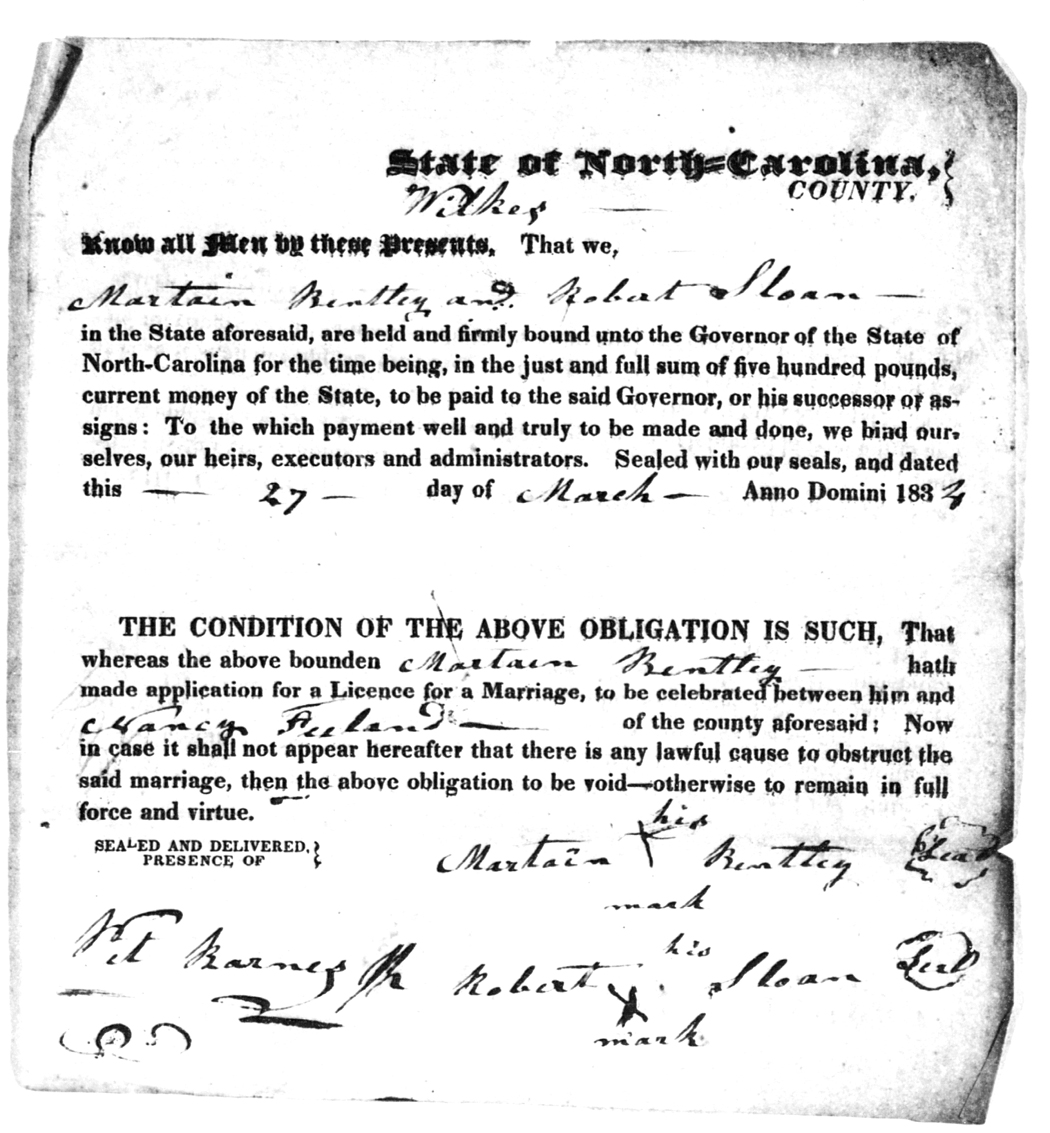 State of North-Carolina,
Wilkes COUNTY.
Know all Men by these Presents, That we,
Martain Bentley and Robert Sloan
in the State aforesaid, are held and firmly bound unto the Governor of the State of
North-Carolina for the time being, in the just and full sum of five hundred pounds,
current money of the State, to be paid to the said Governor, or his successor or as-
signs: To the which payment well and truly to be made and done, we bind our-
selves, our heirs, executors and administrators. Sealed with our seals, and dated
this — 27 — day of March — Anno Domini 183
THE CONDITION OF THE ABOVE OBLIGATION IS SUCH, That
whereas the above bounden Martain Bentley — hath
made application for a Licence for a Marriage, to be celebrated between him and
Nancy — of the county aforesaid: Now
in case it shall not appear hereafter that there is any lawful cause to obstruct the
said marriage, then the above obligation to be void—otherwise to remain in full
force and virtue.
SEALED AND DELIVERED,
PRESENCE OF
his
Martain Bentley Seal
mark
his
Barnes Robert Sloan Seal
mark